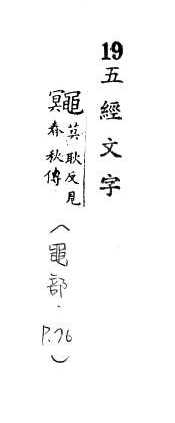 19五經文字
鼆莫耿反見
春秋傳
(黽部.P.76)